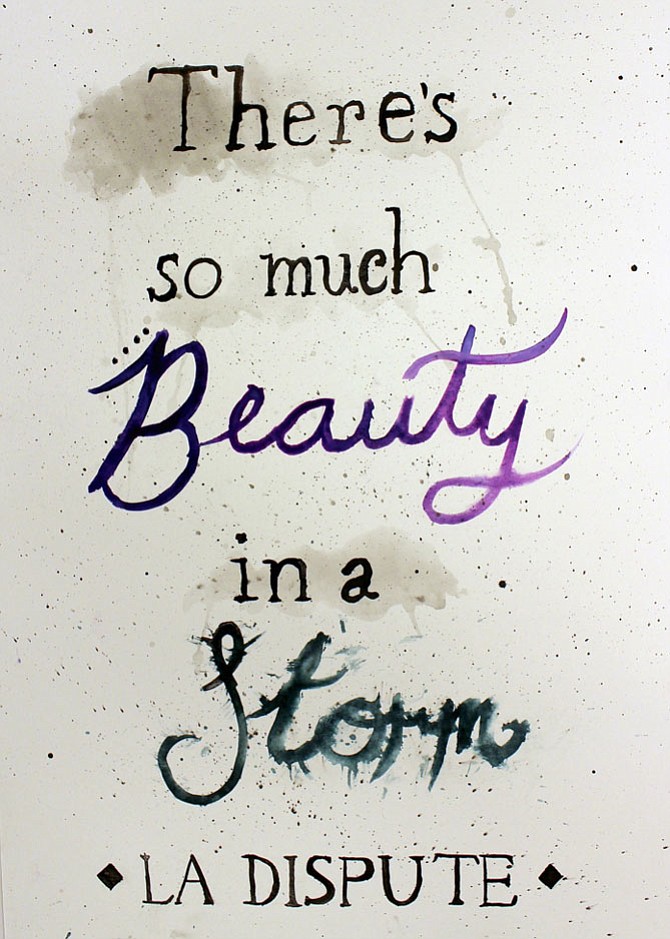 There's
so much
Beauty
in a
Storm
LA DISPUTE